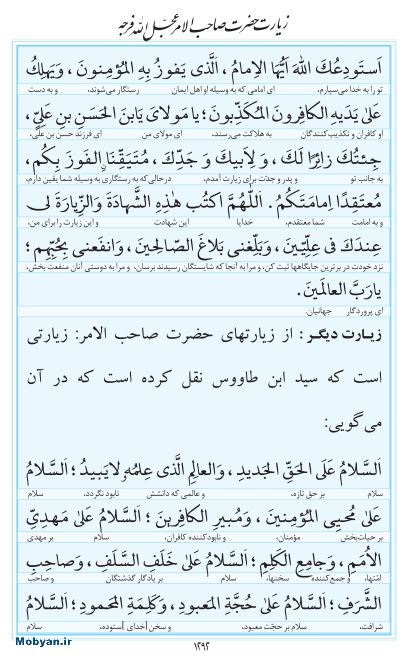 زیارت حضرت صاحب الامر عجل الله فرجه
اَستَودِعُكَ اللهَ اَیُّهَا الاِمامُ، اَلَّذی یَفوزُ بِهِ المُؤمِنونَ، وَیَهلِكُ
تو را به خدا می‌سپارم، ای امامی که به وسیله او اهل ایمان رستگار می‌شوند، و به دست
عَلیٰ یَدَیهِ الکافِرونَ المُکَذِّبونَ؛ یا مَولایَ یَابنَ الحَسَنِ بنِ عَلِیٍّ،
او کافران و تکذیب کنندگان به هلاکت می‌رسند، ای مولای من ای فرزند حسن بن علی،
جِئتُكَ زائِرًا لَكَ، وَ لِاَبیكَ وَ جَدِّكَ، مُتَیَقِّنًا الفَوزَ بِکُم،
به جانب تو و پدر و جدّت برای زیارت آمدم، درحالی‌که به رستگاری به وسیله شما یقین دارم،
مُعتَقِدًا اِمامَتَکُم. اَللّٰهُمَّ اکتُب هٰذِهِ الشَّهادَةَ وَالزِّیارَةَ لی
و به امامت شما معتقدم، خدایا این شهادت و این زیارت را برای من،
عِندَكَ فی عِلِّیّینَ، وَبَلِّغنی بَلاغَ الصّالِحینَ، وَانفَعنی بِحُبِّهِم؛
نزد خودت در برترین جایگاهها ثبت کن، و مرا به آنجا که شایستگان رسیدند برسان، و مرا به دوستی آنان منفعت بخش،
یارَبَّ العالَمینَ.
ای پروردگار جهانیان.
زیارت دیگر: از زیارتهای حضرت صاحب الامر: زیارتی
است که سید ابن طاووس نقل کرده است که در آن
می‌گویی:
اَلسَّلامُ عَلَی الحَقِّ الجَدیدِ، وَالعالِمِ الَّذی عِلمُهُ لایَبیدُ؛ اَلسَّلامُ
سلام بر حق تازه، و عالمی که دانشش نابود نگردد، سلام
عَلیٰ مُحیِی المُؤمِنینَ، وَمُبیرِ الکافِرینَ؛ اَلسَّلامُ عَلیٰ مَهدِیِّ
بر حیات‌بخش مؤمنان، و نابودکننده کافران، سلام بر مهدی
الاُمَمِ، وَجامِعِ الکَلِمِ؛ اَلسَّلامُ عَلیٰ خَلَفِ السَّلَفِ، وَصاحِبِ
امّتها، و جمع‌کننده سخنها، سلام بر یادگار گذشتگان و صاحب
الشَّرَفِ؛ اَلسَّلامُ عَلیٰ حُجَّةِ المَعبودِ، وَکَلِمَةِ المَحمودِ؛ اَلسَّلامُ
شرافت، سلام بر حجّت معبود، و سخن [خدای] ستوده، سلام
۱۲۹۲
Mobyan.ir